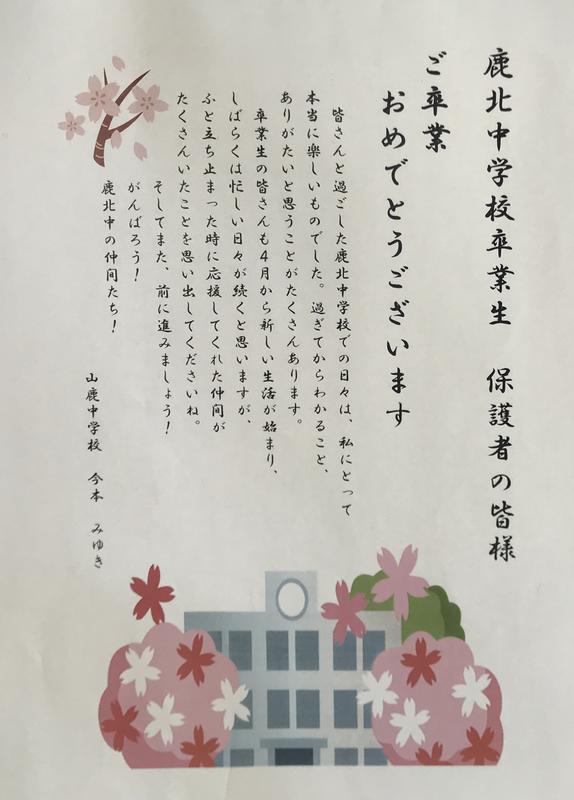 鹿北中学校卒業生　保護者の皆様
ご卒業
おめでとうございます
皆さんと過ごした鹿北中学校での日々は、私にとって
本当に楽しいものでした。過ぎてからわかること、
ありがたいと思うことがたくさんあります。
卒業生の皆さんも４月から新しい生活が始まり、
しばらくは忙しい日々が続くと思いますが、
ふと立ち止まった時に応援してくれた仲間が
たくさんいたことを思い出してくださいね。
そしてまた、前に進みましょう！
がんばろう！
鹿北中の仲間たち！
山鹿中学校　今本　みゆき